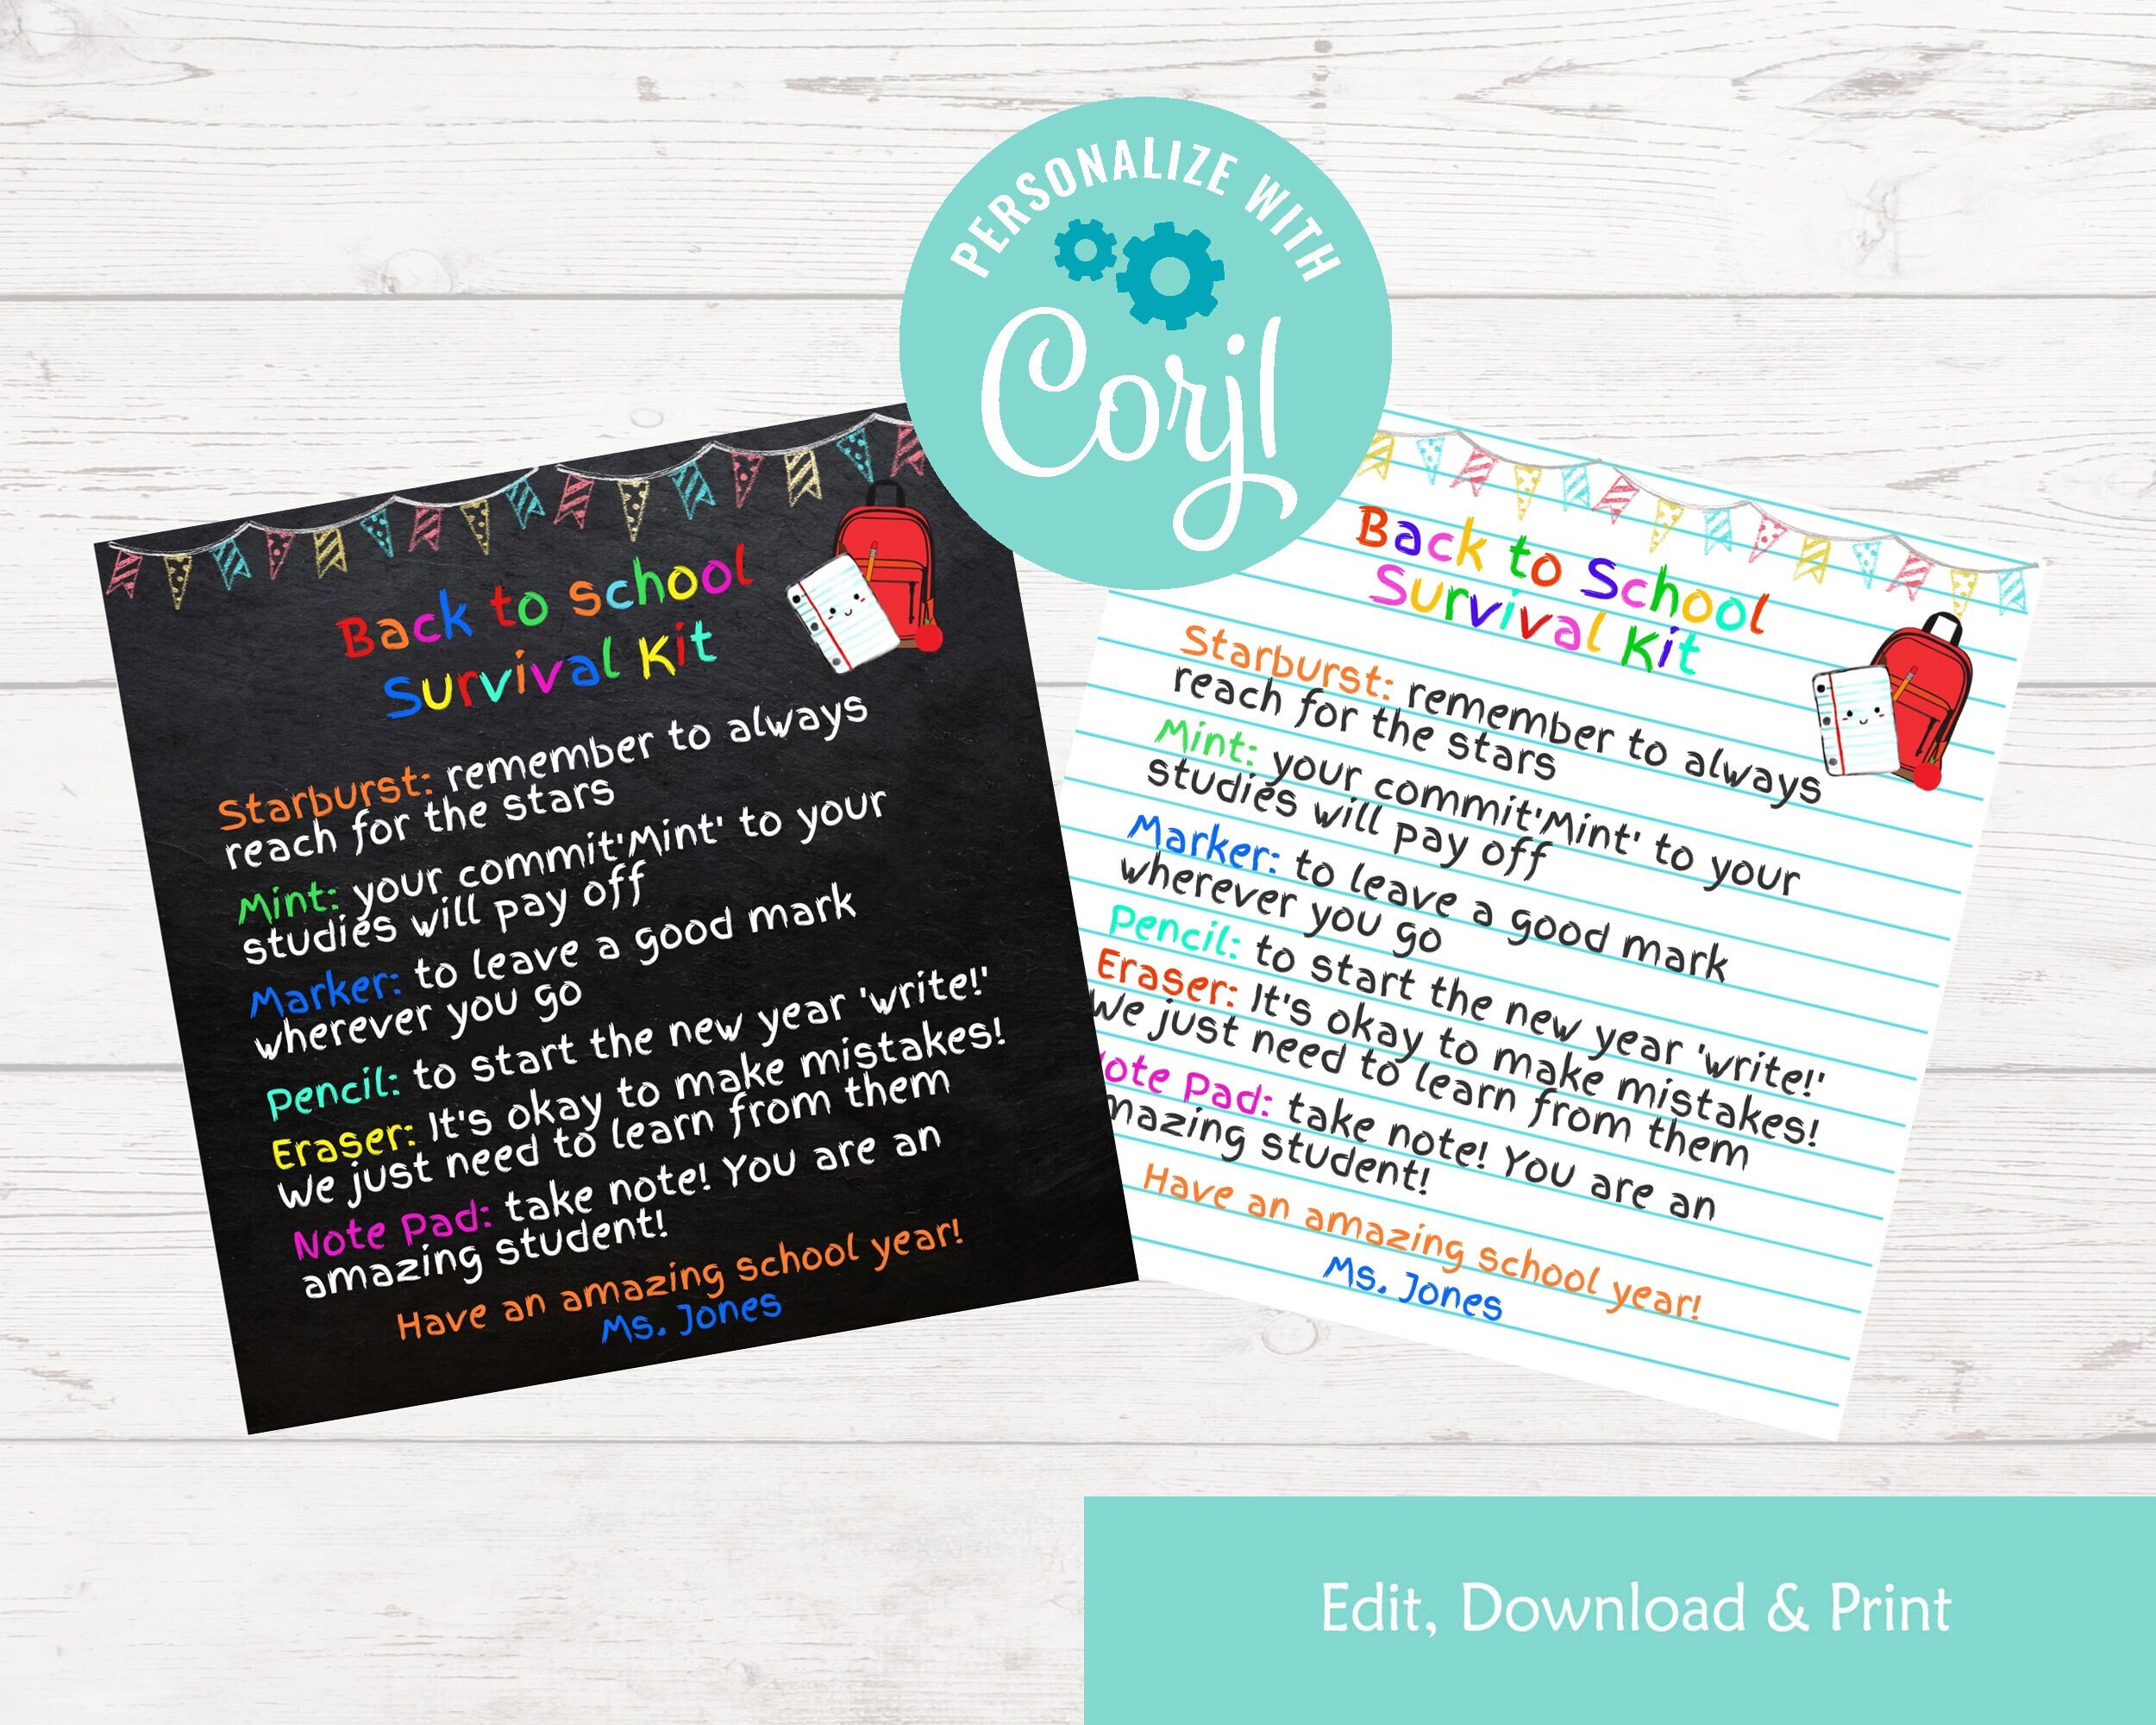 PERSONALIZE WITH
Corjl
Back to School
Survival Kit
Starburst: remember to always
reach for the stars
Mint: your commit'Mint' to your
studies will pay off
Marker: to leave a good mark
wherever you go
Pencil: to start the new year 'write!'
Eraser: It's okay to make mistakes!
We just need to learn from them
Note Pad: take note! You are an
amazing student!
Have an amazing school year!
Ms. Jones
Back to School
Survival Kit
Starburst: remember to always
reach for the stars
Mint: your commit'Mint' to your
studies will pay off
Marker: to leave a good mark
wherever you go
Pencil: to start the new year 'write!'
Eraser: It's okay to make mistakes!
We just need to learn from them
ote Pad: take note! You are an
mazing student!
Have an amazing school year!
Ms. Jones
Edit, Download & Print